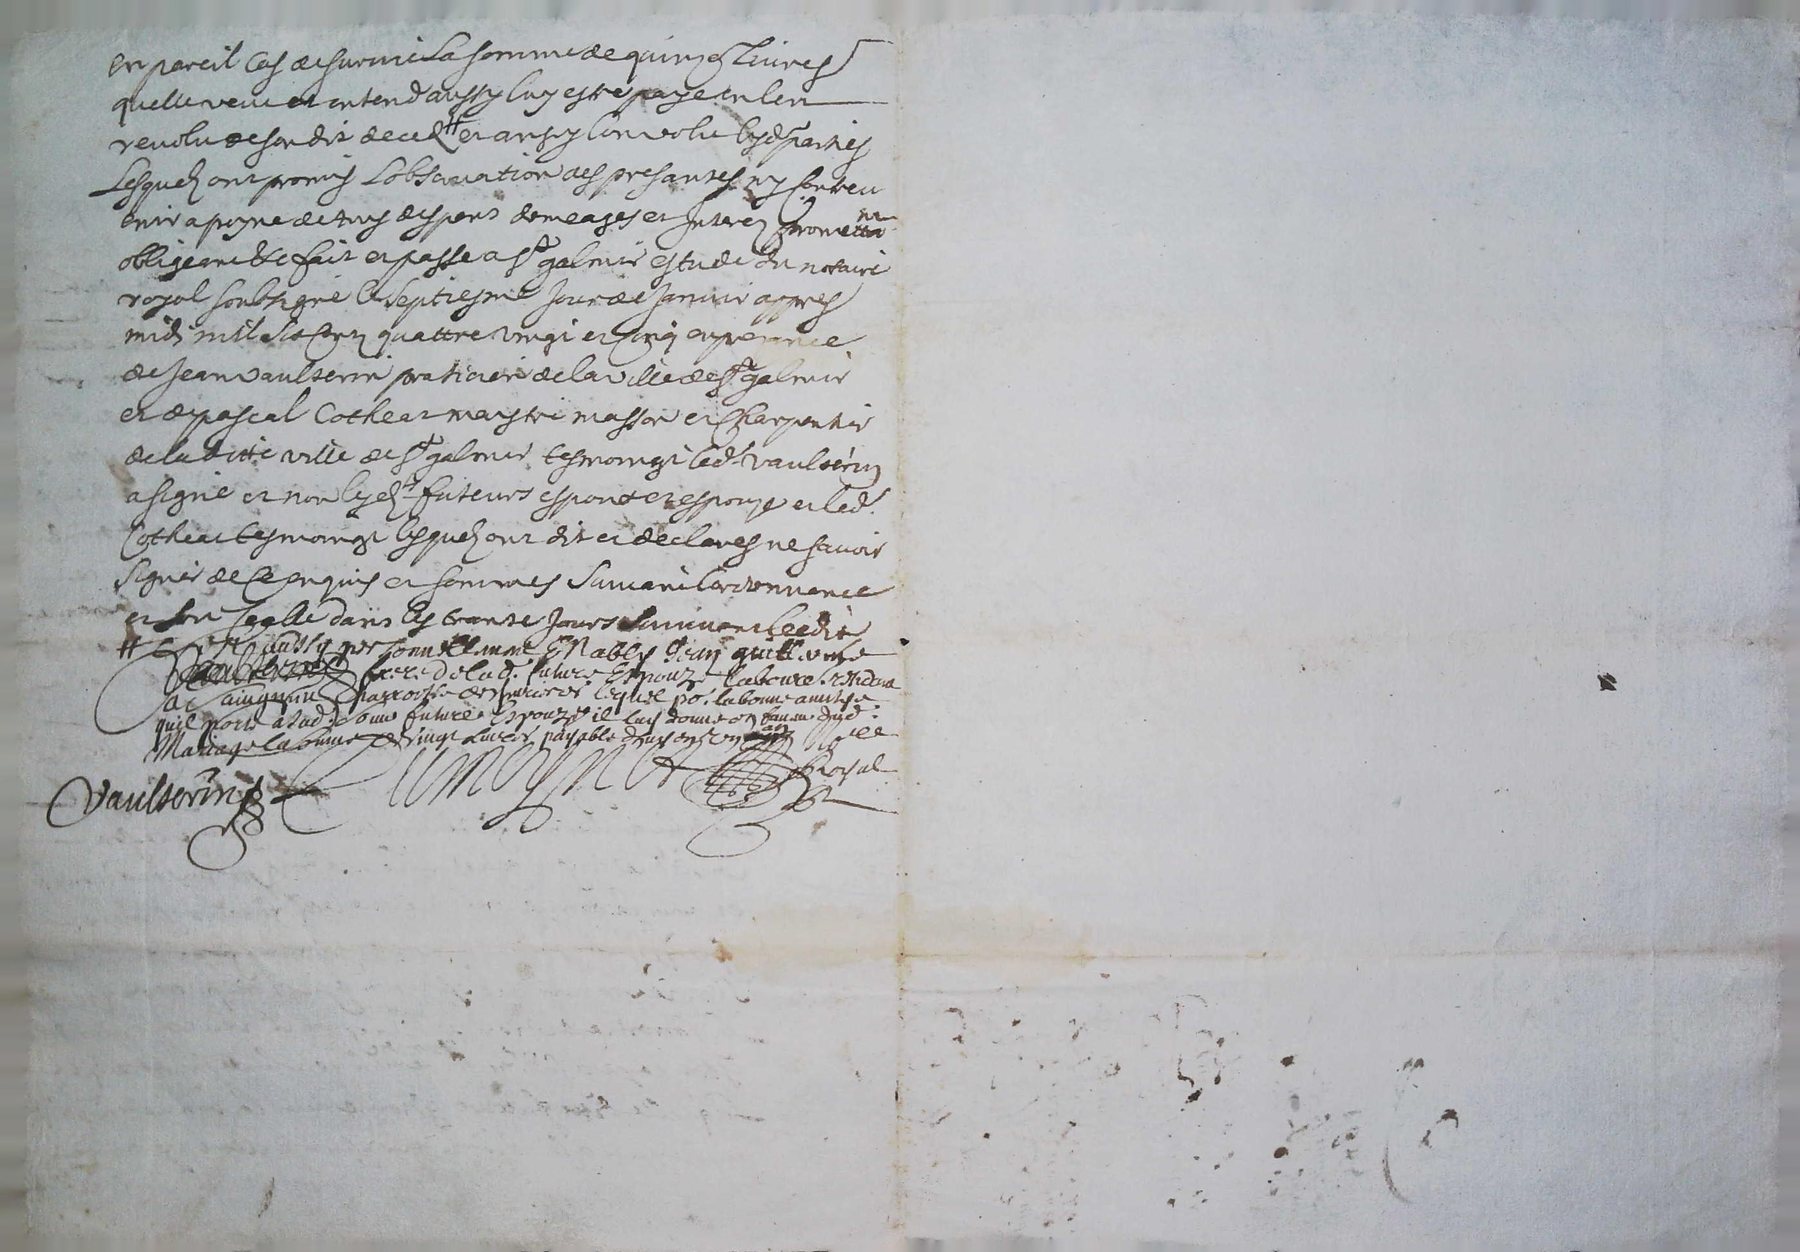 en pareil cas de survie la somme de quinze livres
quelle veut et entend aussy luy estre paye en len
revolu de son dit deced # et ainsy convolu lesd parties
Lesquels ont promis Lobservation des presantes ny contreve
enir a peyne de tous despens domeages et Interez promettant
obligeant &c fait et passe a St galmier estude du notaire
royal soubsigne le septiesme Jour de Janvier appres
midy mil six cens quattre vingt et cinq en presence
de Jean Vaulserin praticien de la ville de St galmier
et de pascal Cotheat maystre masson et Charpentier
de la ditte ville de St galmier tesmoings led. Vaulserin
a signe et non lesdt futeurs espoux et espouze et led.
Cotheat tesmoings lesquels ont dit et declares ne savoir
signer de ce enquis et sommes suivant lordonnance
et sera scelle dans les trante Jours suivant leedit
# aussy personnellement Estably Jean
frere de lad. future Espouze laboureur
parroisse de lequel po. la bonne amitye
quil porte a lad. future Espouze il luy donne en faveur dud.
Mariage la somme de vingt livres payable dans
royal
Vaulserin